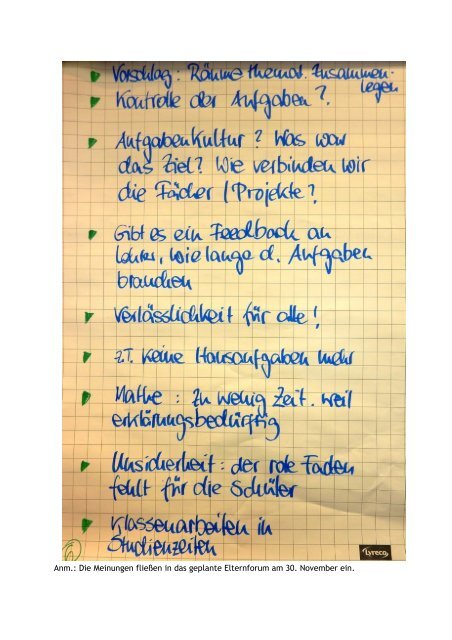 Vorschlag: Räume themat. Zusammen-
legen
Kontrolle der Aufgaben?
Aufgabenkultur? Was war
das Ziel? Wie verbinden wir
die Fächer / Projekte?
Gibt es ein Feedback an
Lehrer, wie lange d. Aufgaben
brauchen
Verlässlichkeit für alle!
z.T. keine Hausaufgaben mehr
Mathe: Zu wenig Zeit. weil
erklärungsbedürftig
Unsicherheit: der rote Faden
fehlt für die Schüler
Klassenarbeiten in
Studienzeiten
Lyreco
Anm.: Die Meinungen fließen in das geplante Elternforum am 30. November ein.